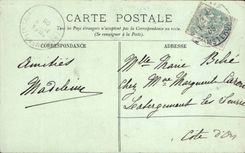 CARTE POSTALE
Tous les Pays étrangers n'acceptent pas la Correspondance au recto.
(Se renseigner à la Poste).
CORRESPONDANCE
ADRESSE
Amitiés
Madeleine
Mlle Marie
Chez Mme Marguerite
Labergement les Seurre
Côte d'Or